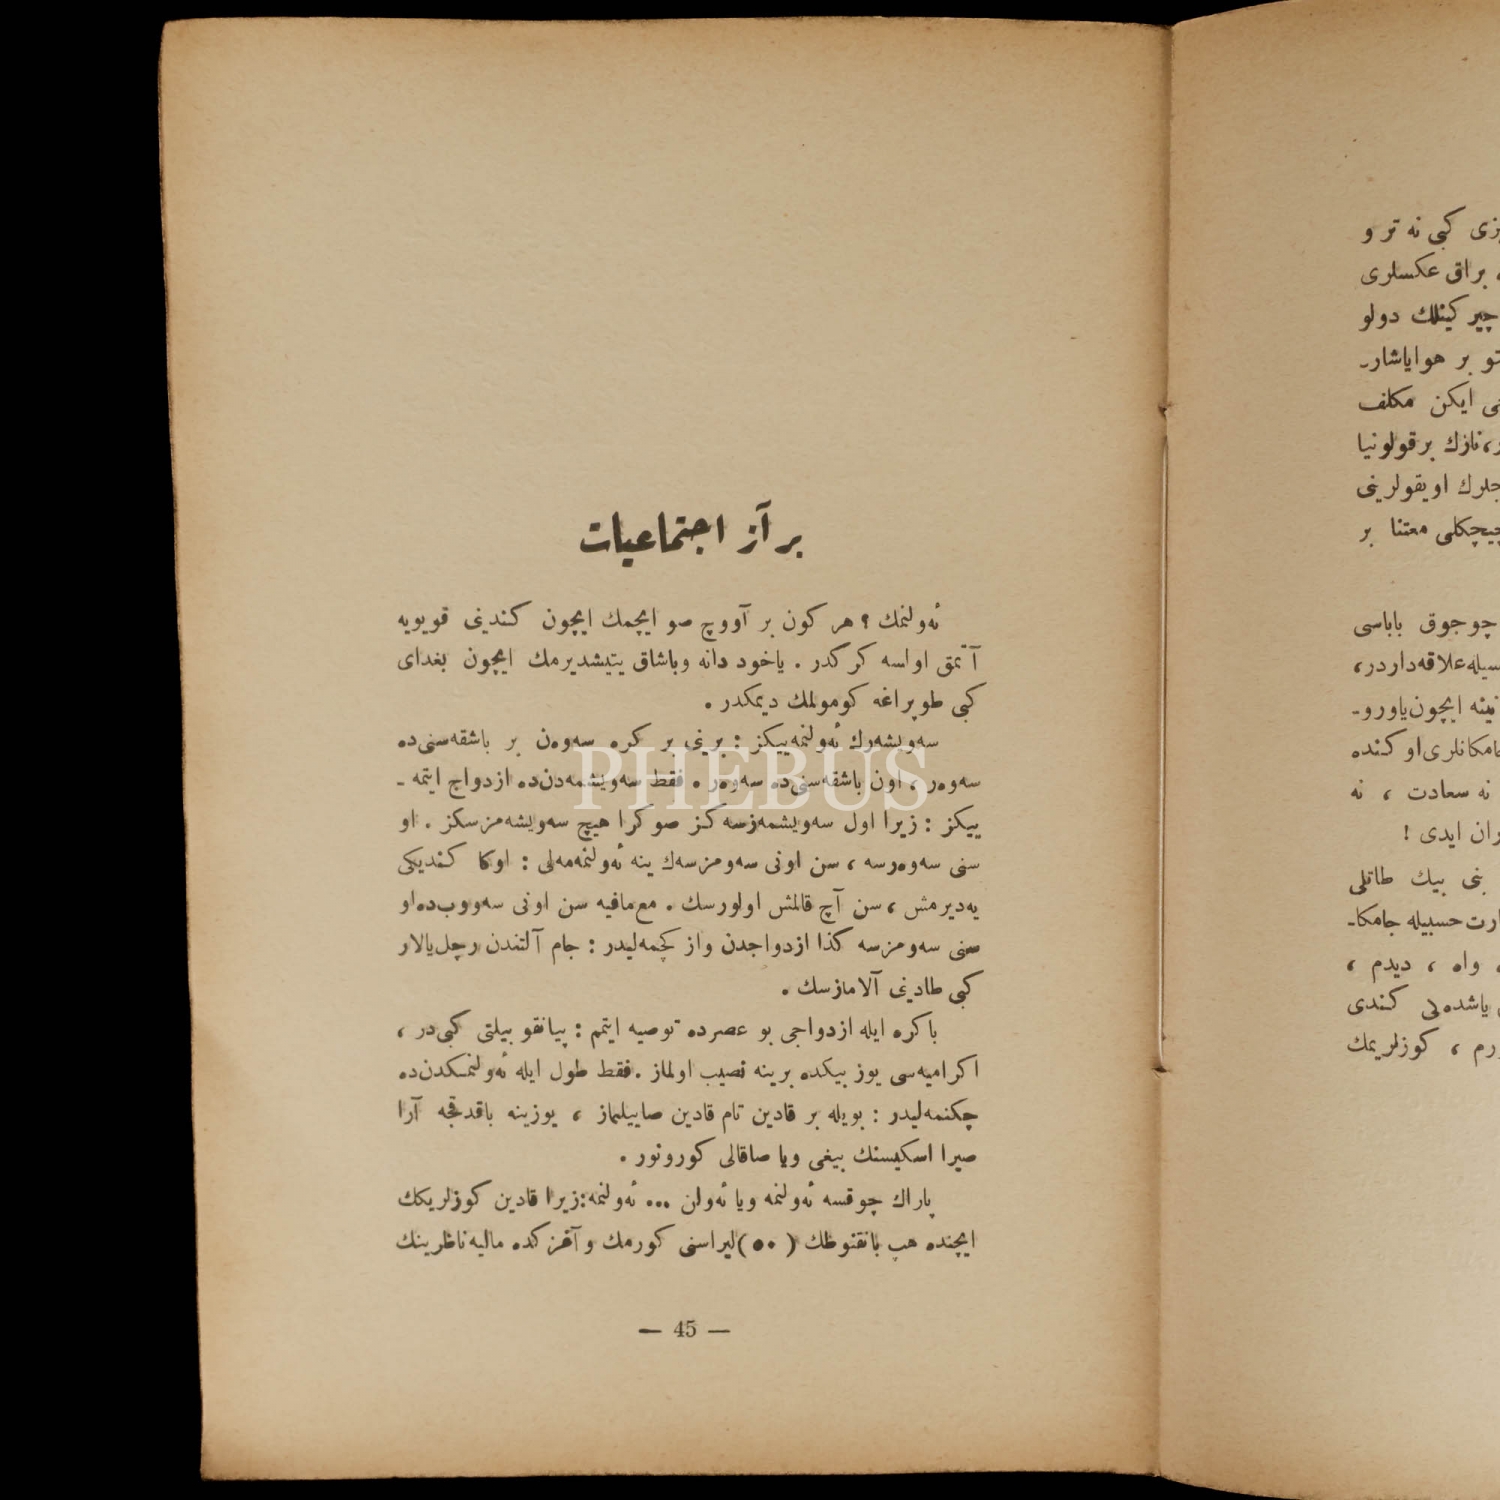 بر آز اجتماعيات
ئه‌ولنمك ؟ هر كون بر آووچ صو ايچمك ايچون كندينى قويويه
آتمق اولسه كركدر . ياخود دانه وباشاق يتيشديرمك ايچون بغداى
كبى طوپراغه كومولمك ديمكدر .
سه‌ويشه‌رك ئه‌ولنمه‌ييكز : برينى بر كره سه‌وه‌ن بر باشقه‌سنى‌ده
سه‌وه‌ر ، اون باشقه‌سنى‌ده سه‌وه‌ر . فقط سه‌ويشمه‌دن‌ده ازدواج ايتمه ـ
ييكز : زيرا اول سه‌ويشمه‌زسه‌كز صوكرا هيچ سه‌ويشه‌مزسكز . او
سنى سه‌وه‌رسه ، سن اونى سه‌ومزسه‌ك ينه ئه‌ولنمه‌مه‌لى : اوكا كنديكى
يه‌ديرمش ، سن آچ قالمش اولورسك . مع‌مافيه سن اونى سه‌ووب‌ده‌او
سنى سه‌ومزسه كذا ازدواجدن واز كچمه‌ليدر : جام آلتندن رچل‌يالار
كبى طادينى آلامازسك .
باكره ايله ازدواجى بو عصرده توصيه ايتمم : پيانقو بيلتى كبى‌در ،
اكراميه‌سى يوز بيكده برينه نصيب اولماز . فقط طول ايله ئه‌ولنمكدن‌ده
چكنمه‌ليدر : بويله بر قادين تام قادين صاييلماز ، يوزينه باقدقجه آرا
صيرا اسكيسنك بيغى ويا صاقالى كورونور .
پاراك چوقسه ئه‌ولنمه ويا ئه‌ولن ... ئه‌ولنمه:زيرا قادين كوزلريكك
ايچنده هپ بانقنوطك (٥٠)ليراسنى كورمك و آغزكده ماليه ناظرينك
— 45 —
كبى نه تر و
براق عكسلرى
چيركينلك دولو
بر هواياشار ـ
ايكن مكلف
نازك برقولونيا
اويقولرينى
معتنا بر
چوجوق باباسى
علاقه‌داردر،
ايچون‌ياورو ـ
او كنده
نه سعادت ، نه
ايدى !
بنى بيك طاتلى
حسبيله جامكا ـ
واه ، ديدم ،
كندى
كوزلريمك